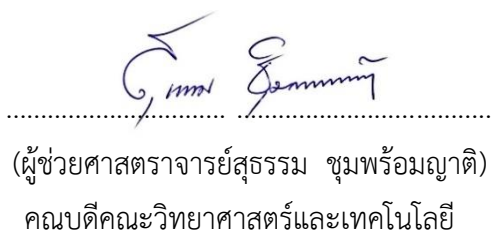 (ผู้ช่วยศาสตราจารย์สุธรรม ชุมพร้อมญาติ)
คณบดีคณะวิทยาศาสตร์และเทคโนโลยี